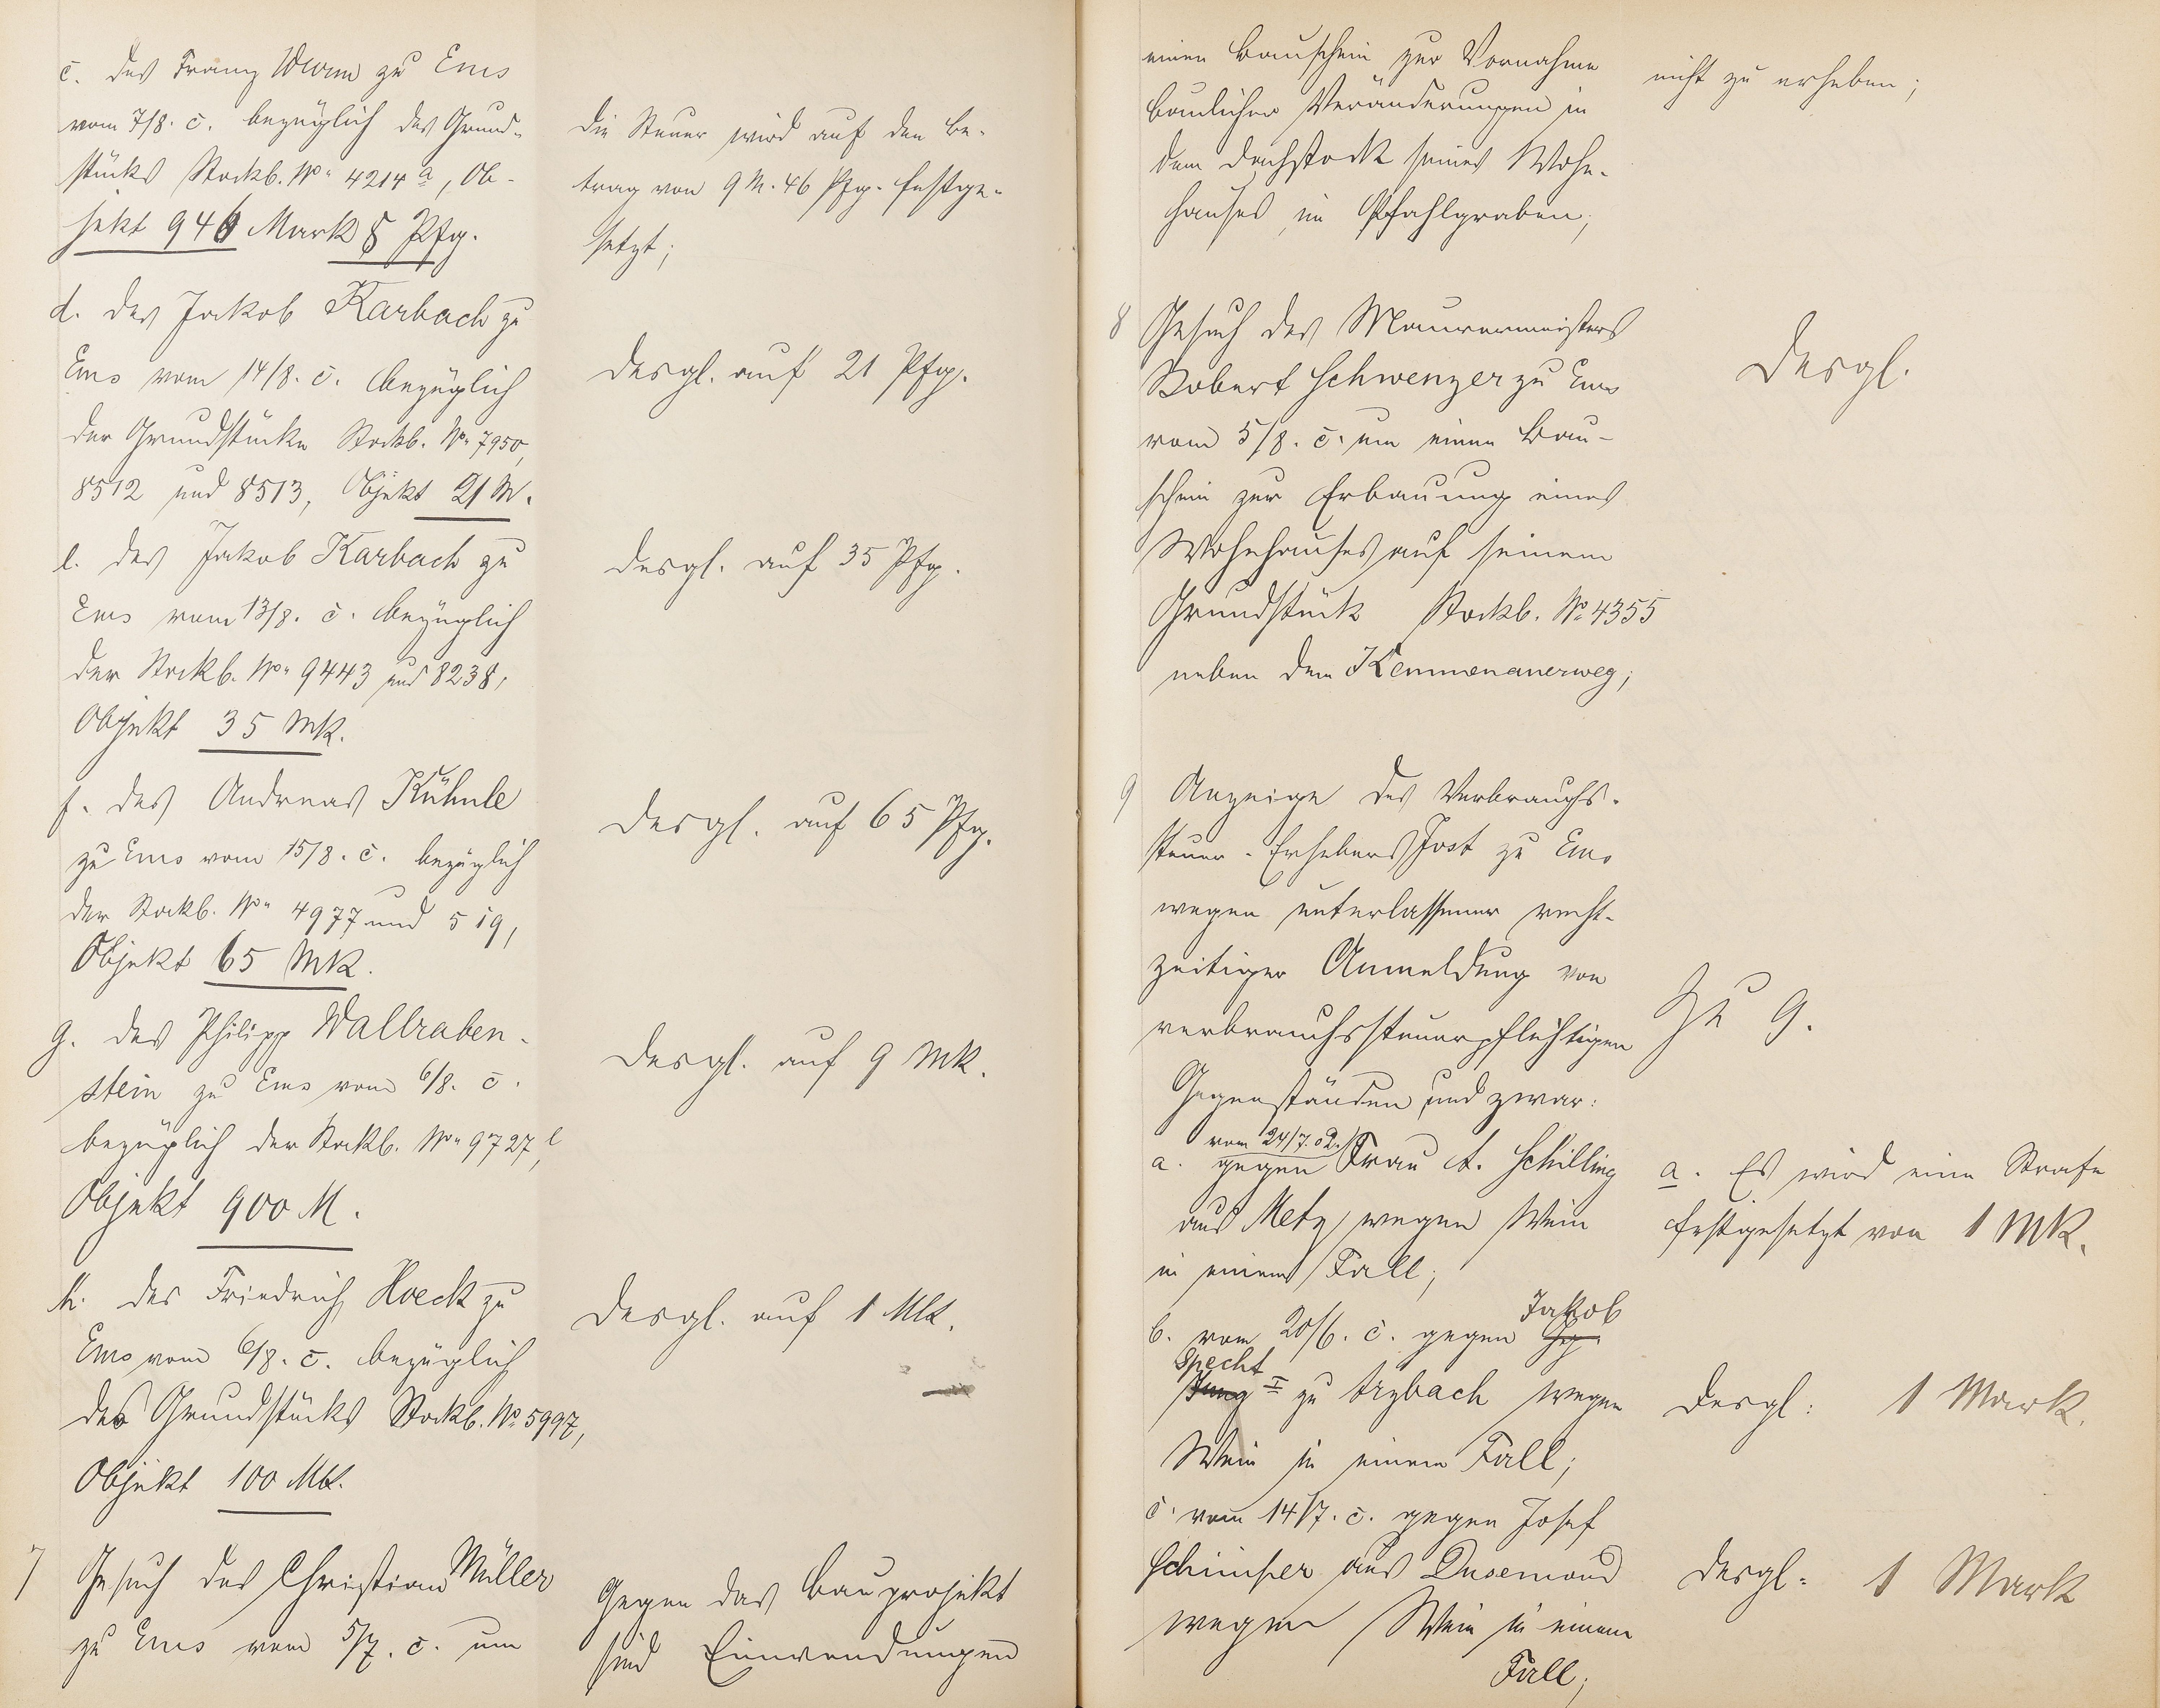 c. des Franz Wurm zu Ems
vom 7/8. c. bezüglich des Grund-
stücks Stockb. No. 4214 a, Ob-
jekt 946 Mark 8 Pfg.
Die Steuer wird auf den Be-
trag von 9 M. 46 Pfg. festge-
setzt;
d. des Jakob Karbach zu
Ems vom 14/8. c. bezüglich
der Grundstücke Stockb. No. 7950,
8512 und 8513, Objekt 21 M.
desgl. auf 21 Pfg.
e. des Jakob Karbach zu
Ems vom 13/8. c. bezüglich
der Stockb. No. 9443 und 8238,
Objekt 35 Mk.
desgl. auf 35 Pfg.
f. des Andreas Kühnle
zu Ems vom 15/8. c. bezüglich
der Stockb. No. 4977 und 519,
Objekt 65 Mk.
desgl. auf 65 Pfg.
g. des Philipp Wallraben-
stein zu Ems vom 6/8. c.
bezüglich der Stockb. No. 9727,
Objekt 900 M.
desgl. auf 9 Mk.
h. des Friedrich Hoeck zu
Ems vom 6/8. c. bezüglich
des Grundstücks Stockb. No. 5997,
Objekt 100 Mk.
desgl. auf 1 Mk.
7 Gesuch des Christian Müller
zu Ems vom 5/7. c. um
Gegen das Bauprojekt
sind Einwendungen
einen Bauschein zur Vornahme
baulicher Veränderungen in
dem Dachstock seines Wohn-
hauses im Pfahlgraben;
nicht zu erheben;
8 Gesuch des Maurermeisters
Robert Schwenzer zu Ems
vom 5/8. c. um einen Bau-
schein zur Erbauung eines
Wohnhauses auf seinem
Grundstück Stockb. No. 4355
neben dem Kemmenauerweg;
desgl.
9 Anzeige des Verbrauchs-
steuer-Erhebers Jost zu Ems
wegen unterlassener recht-
zeitiger Anmeldung von
verbrauchssteuerpflichtigen
Gegenständen und zwar:
Zu 9.
vom 24/7. 02.
a. gegen Frau A. Schilling
aus Metz wegen Wein
in einem Fall;
a. Es wird eine Strafe
festgesetzt von 1 Mk.
Jakob
b. vom 20/6. c. gegen
Specht
Jung I zu Arzbach wegen
Wein in einem Fall;
desgl: 1 Mark.
c. vom 14/7. c. gegen Josef
Schimper aus Dusemond
wegen Wein in einem
Fall;
desgl: 1 Mark